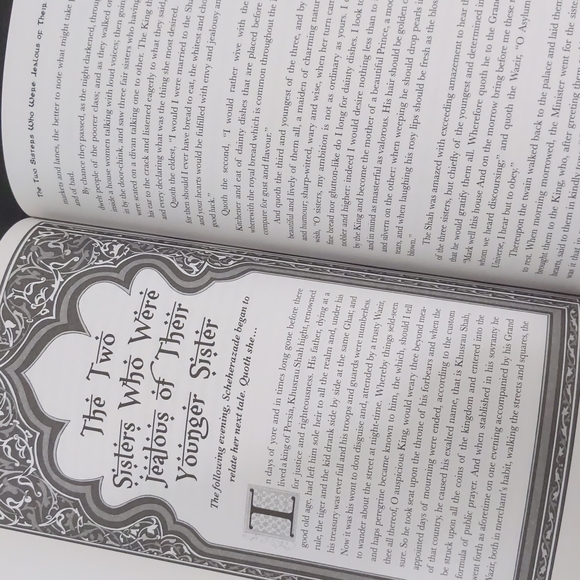 The Two
Sisters Who Were
Jealous of Their
Younger Sister
The following evening, Scheherazade began to
relate her next tale. Quoth she…
In days of yore and in times long gone before there
lived a King of Persia, Khusrau Shah hight, renowned
for justice and righteousness. His father, dying at a
good old age, had left him sole heir to all the realm and, under his
rule, the tiger and the kid drank side by side at the same Ghat; and
his treasury was ever full and his troops and guards were numberless.
Now it was his wont to don disguise and, attended by a trusty Wazir,
to wander about the street at night-time. Whereby things seld-seen
and haps peregrine became known to him, the which, should I tell
thee all thereof, O auspicious King, would weary thee beyond mea-
sure. So he took seat upon the throne of his forbears and when the
appointed days of mourning were ended, according to the custom
of that country, he caused his exalted name, that is Khusrau Shah,
be struck upon all the coins of the kingdom and entered into the
formula of public prayer. And when stablished in his sovranty he
went forth as aforetime on one evening accompanied by his Grand
Wazir, both in merchant's habit, walking the streets and squares, the
The Two Sisters Who Were Jealous of Their
markets and lanes, the better to note what might take
and of bad.
By chance they passed, as the night darkened, through
there people of the poorer class; and as they walked on
inside a house women talking with loud voices; then going
in by the door-chink, and saw three fair sisters who having
were seated on a divan talking one to other. The King
his ear to the crack and listened eagerly to what they said,
and every declaring what was the thing she most desired.
Quoth the eldest, "I would I were married to the Shah
for then should I ever have bread to eat, the whitest and
and your hearts would be fulfilled with envy and jealousy and
good luck."
Quoth the second, "I would rather wive with the
Kitchener and eat of dainty dishes that are placed before
wherewith the royal bread which is common throughout the
compare for gust and flavour."
And quoth the third and youngest of the three, and by
beautiful and lively of them all, a maiden of charming nature
and humour; sharp-witted, wary and wise, when her turn came
wish, "O sisters, my ambition is not as ordinary as yours. I
fine bread nor glutton-like do I long for dainty dishes. I look to
nobler and higher: indeed I would desire nothing less than to
by the King and become the mother of a beautiful Prince, a
and in mind as masterful as valorous. His hair should be golden
and silvern on the other: when weeping he should drop pearls in
tears, and when laughing his rosy lips should be fresh as the
blown."
The Shah was amazed with exceeding amazement to hear
of the three sisters, but chiefly of the youngest and determined in
that he would gratify them all. Wherefore quoth he to the Grand
"Mark well this house. And on the morrow bring before me these
whom we heard discoursing;" and quoth the Wazir, "O Asylum
Universe, I hear but to obey."
Thereupon the twain walked back to the palace and laid them
to rest. When morning morrowed, the Minister went for the
brought them to the King, who, after greeting
hearts, said to them in kindly